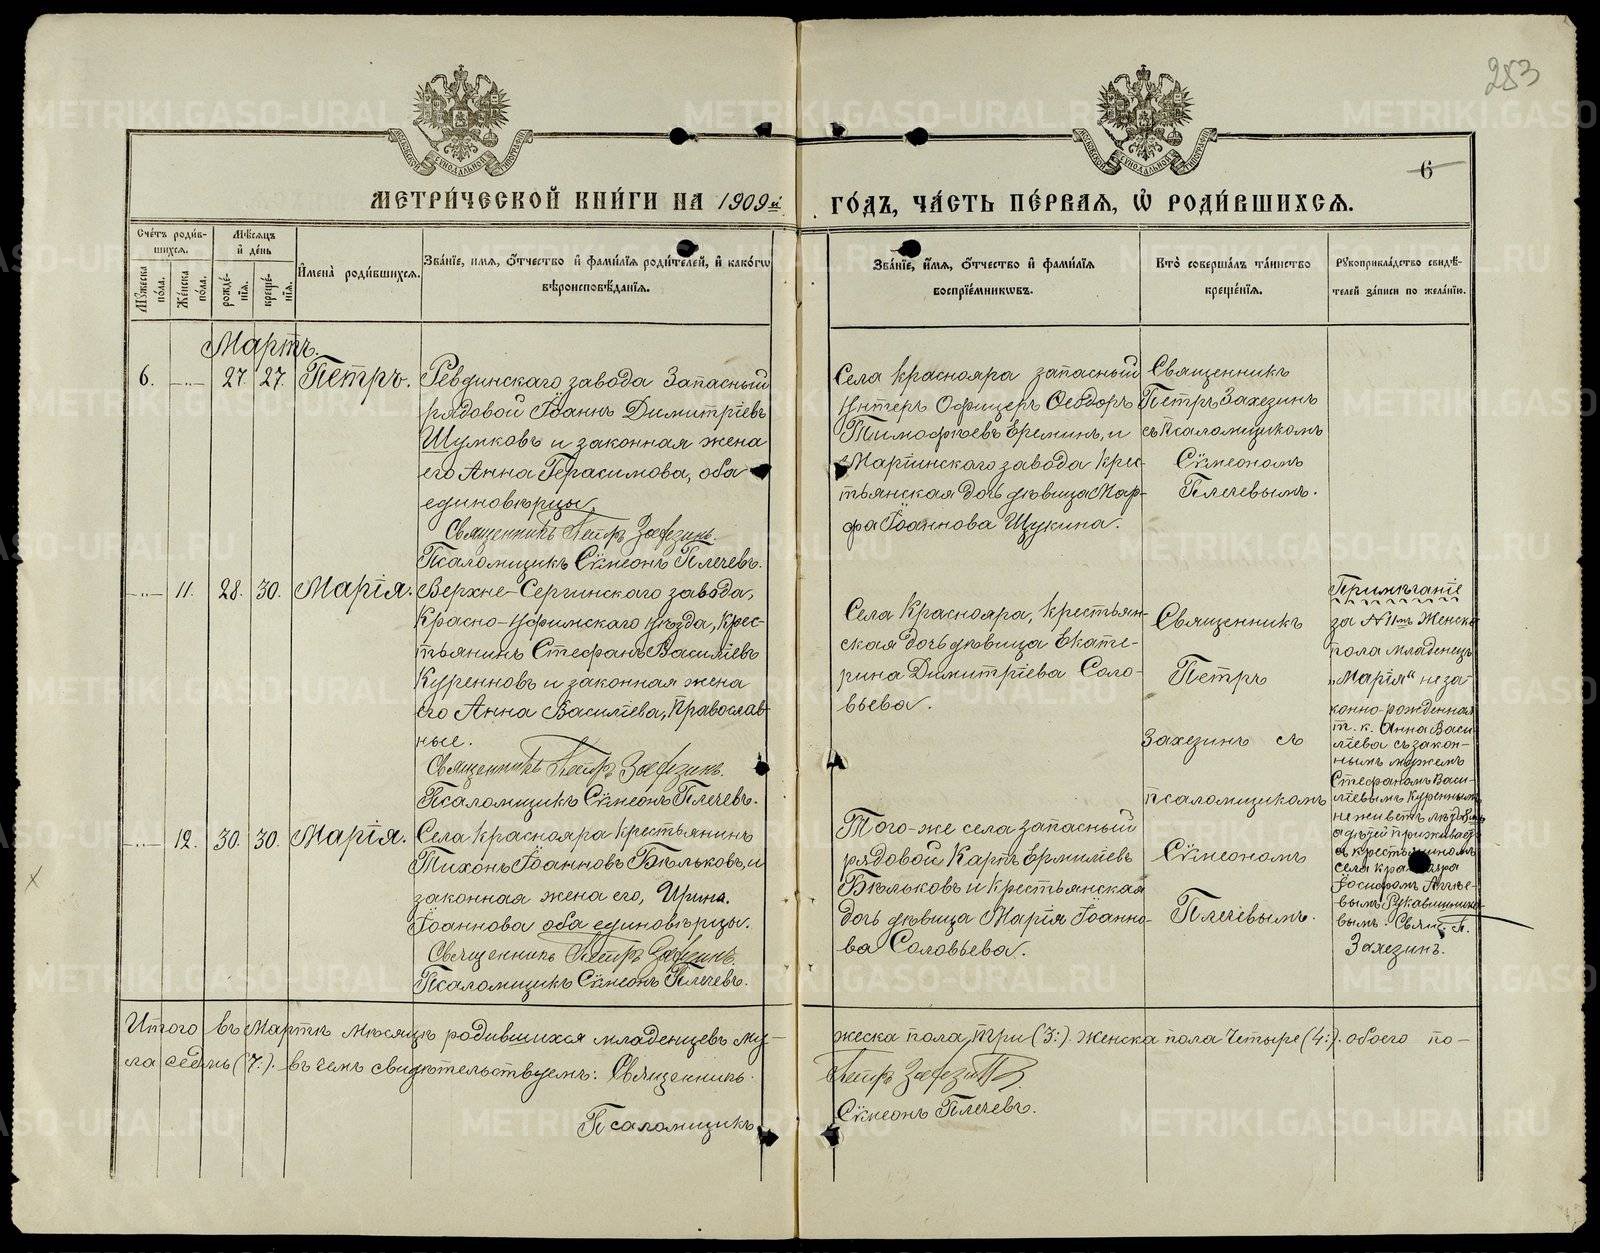 283
6
МЕТРИ́ЧЕСКОЙ КНИ́ГИ НА 1909й ГО́ДЪ, ЧА́СТЬ ПЕ́РВАЯ, Ѡ РОДИ́ВШИХСЯ.
Сче́тъ роди́вшихся.
Мѣ́сяцъ и де́нь
Му́жеска по́ла.
Же́нска по́ла.
рожде́нія.
креще́нія.
Имена̀ роди́вшихся.
Зва́ніе, имя, о́тчество и фами́лія роди́телей, и како́гѡ
вѣроисповѣ́данія.
Зва́ніе, и́мя, о́тчество и фами́лія
воспріе́мникѡвъ.
Кто̀ соверша́лъ та́инство
креще́нія.
Рꙋкоприкла́дство свидѣ́-
телей за́писи по жела́нію.
Мартъ.
6. —"— 27. 27. Петръ.
Ревдинскаго завода Запасный
рядовой Іоаннъ Димитріевъ
Шумковъ и законная жена
его Анна Герасимова, оба
единовѣрцы.
Священникъ Петръ Захезинъ.
Псаломщикъ Сѵмеонъ Плечевъ.
Села Краснояра запасный
Унтеръ Офицеръ Ѳеодоръ
Тимоѳѣевъ Ереминъ, и
Маріинскаго завода Крес-
тьянская дочь дѣвица Мар-
фа Іоаннова Щукина.
Священникъ
Петръ Захезинъ
съ Псаломщикомъ
Сѵмеономъ
Плечевымъ.
—"— 11. 28. 30. Марія.
Верхне-Сергинскаго завода,
Красно-Уфимскаго уѣзда, Крес-
тьянинъ Стефанъ Василіевъ
Куренновъ и законная жена
его Анна Василіева, Православ-
ные.
Священникъ Петръ Захезинъ.
Псаломщикъ Сѵмеонъ Плечевъ.
Села Краснояра, Крестьян-
ская дочь дѣвица Екате-
рина Димитріева Соло-
вьева.
Священникъ
Петръ
Захезинъ съ
псаломщикомъ
Сѵмеономъ
Плечевымъ.
Примѣчаніе
за №11мъ Женска
пола младенецъ
„Марія" неза-
конно-рожденная
т. к. Анна Васи-
ліева съ закон-
нымъ мужемъ
Стефаномъ Васи-
ліевымъ Куреннымъ
не живетъ
а дѣтей приживаетъ
съ крестьяниномъ
села Краснояра
Іосифомъ
вымъ Рукавишнико-
вымъ. Свящ. П.
Захезинъ.
—"— 12. 30. 30. Марія.
Села Краснояра Крестьянинъ
Тихонъ Іоанновъ Бѣльковъ, и
законная жена его, Ирина
Іоаннова оба единовѣрцы.
Священникъ Петръ Захезинъ.
Псаломщикъ Сѵмеонъ Плечевъ.
Того-же села запасный
рядовой Карпъ Ермиліевъ
Бѣльковъ и Крестьянская
дочь дѣвица Марія Іоанно-
ва Соловьева.
Итого въ Мартѣ мѣсяцѣ родившихся младенцевъ му-
жеска пола, три (3:). Женска пола Четыре (4:). обоего по-
ла седмь (7:). въ чемъ свидѣтельствуемъ: Священникъ
Петръ Захезинъ
Псаломщикъ
Сѵмеонъ Плечевъ.